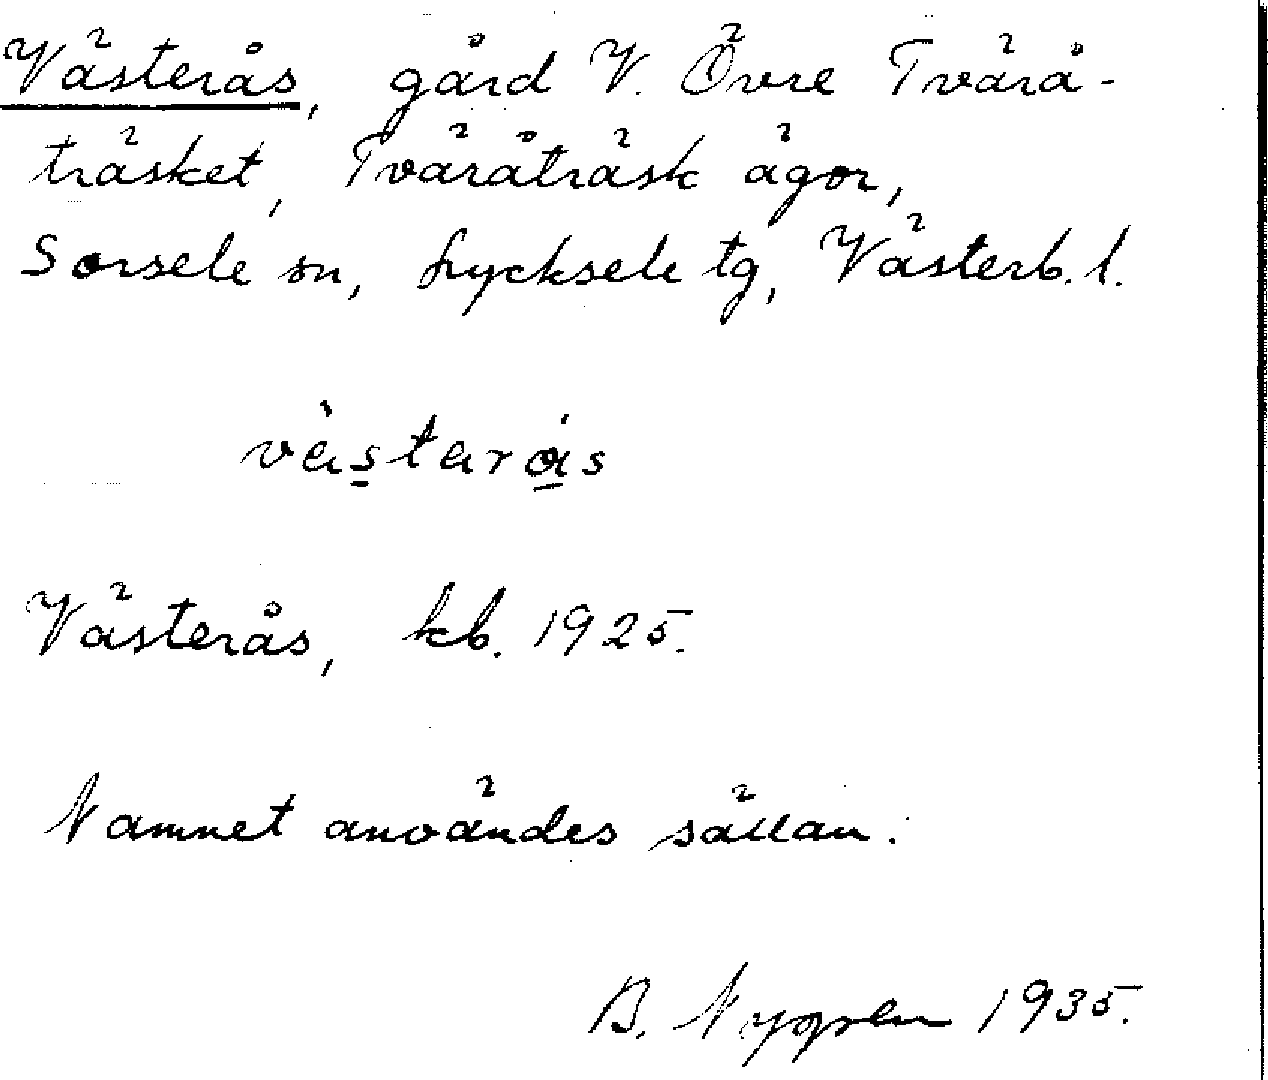 Västerås, gård V. Övre Tvärå-
träsket, Tväråträsk ägor,
Sorsele sn, Lycksele tg, Västerb. l.
västarås
Västerås, kb. 1925.
Namnet användes sällan.
B. Nygren 1935.